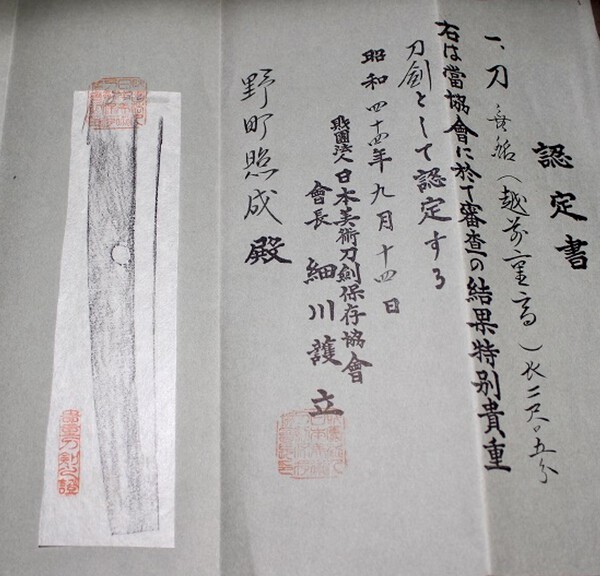 認定書
一、刀 無銘（越前重高）長二尺〇五分
右は當協會に於て審査の結果特別貴重
刀劍として認定する
昭和四十四年九月十四日
財團法人日本美術刀劍保存協會
會長 細川護立
野町照成殿
貴重刀剣之證